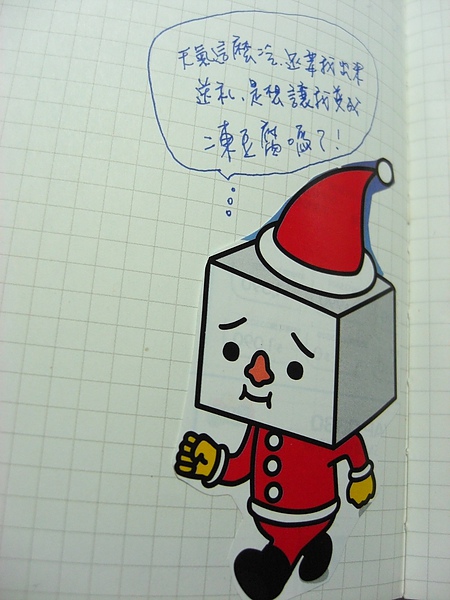 天氣這麼冷.還叫我出來
送礼.是想讓我變成
凍豆腐嗎？！